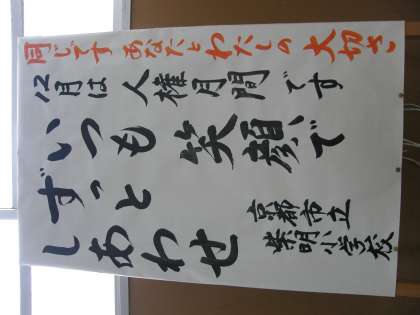 同じです あなたとわたしの 大切さ
12月は 人権月間 です
いつも 笑顔で
ずっと
しあわせ
京都市立
紫明小学校